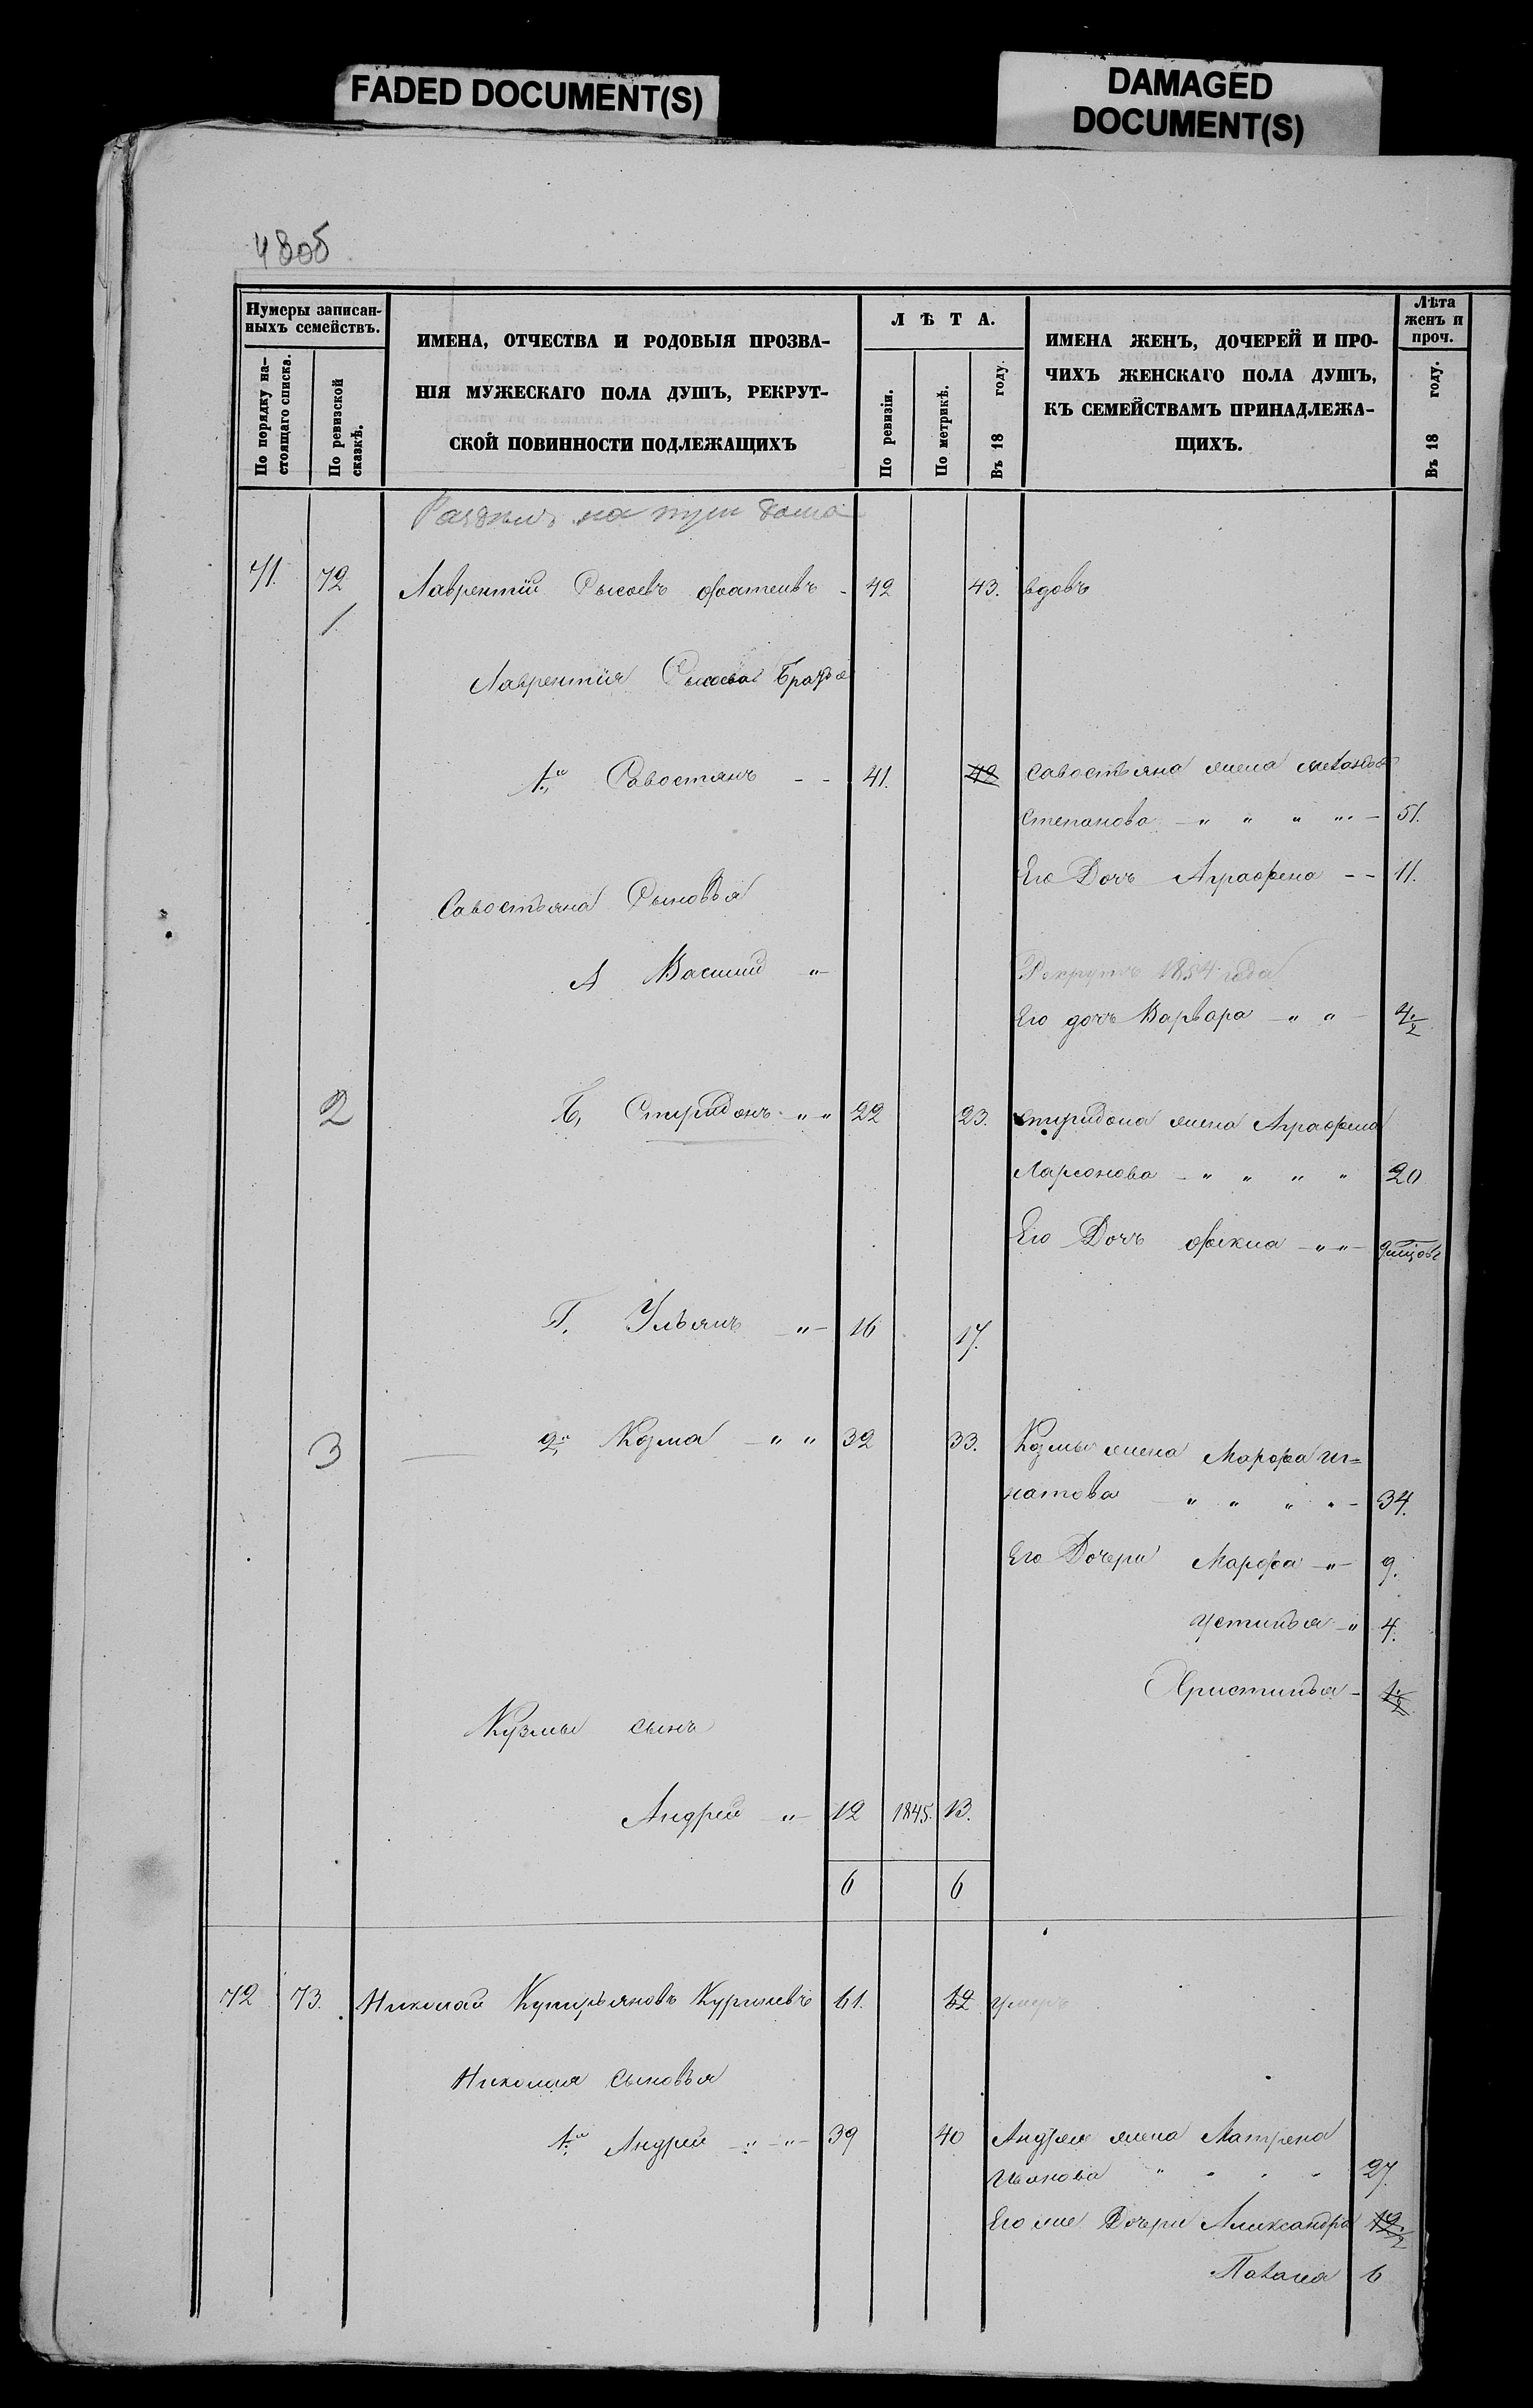 FADED DOCUMENT(S)
DAMAGED
DOCUMENT(S)
480б
Нумеры записан-
ныхъ семействъ.
По порядку на-
стоящаго списка.
По ревизской
сказкѣ.
ИМЕНА, ОТЧЕСТВА И РОДОВЫЯ ПРОЗВА-
НІЯ МУЖЕСКАГО ПОЛА ДУШЪ, РЕКРУТ-
СКОЙ ПОВИННОСТИ ПОДЛЕЖАЩИХЪ
ЛѢТА.
По ревизіи.
По метрикѣ.
Въ 18 году.
ИМЕНА ЖЕНЪ, ДОЧЕРЕЙ И ПРО-
ЧИХЪ ЖЕНСКАГО ПОЛА ДУШЪ,
КЪ СЕМЕЙСТВАМЪ ПРИНАДЛЕЖА-
ЩИХЪ.
Лѣта
женъ и
проч.
Въ 18 году.
на
71. 72 Лаврентій - 42 43. вдовъ
1
Лаврентія
1й Савостянъ - - 41. 42 Савостьяна жена
Степанова - " " " " - 51.
Его Дочъ Аграфена - - 11.
Савостьяна Сыновья
А Василий "- Рекрутъ 1854 года
Его дочъ Варвара - " " - 4.½
2 Б, Спиридонъ - " " 22 23. Спиридона жена Аграфена
Ларионова - " " " " 20
Его Дочъ Фекла - " " -
Г. Ульянъ - " - 16 17.
3 2й Козма - " " 32 33. Козмы жена Марфа Иг=
натова " " " " - 34.
Его Дочери Марфа - " - 9.
Устинья - " 4.
Христинья - 1.½
Кузмы сынъ
Андрей - " - 12 1845. 13.
6 6
72 73. Николай Куприяновъ 61. 62 умеръ
Николая Сыновья
1й Андрей - " - " - 39 40 Андрея жена Матрена
Иванова " " " " 27.
Его же Дочери Александра 12.½
6